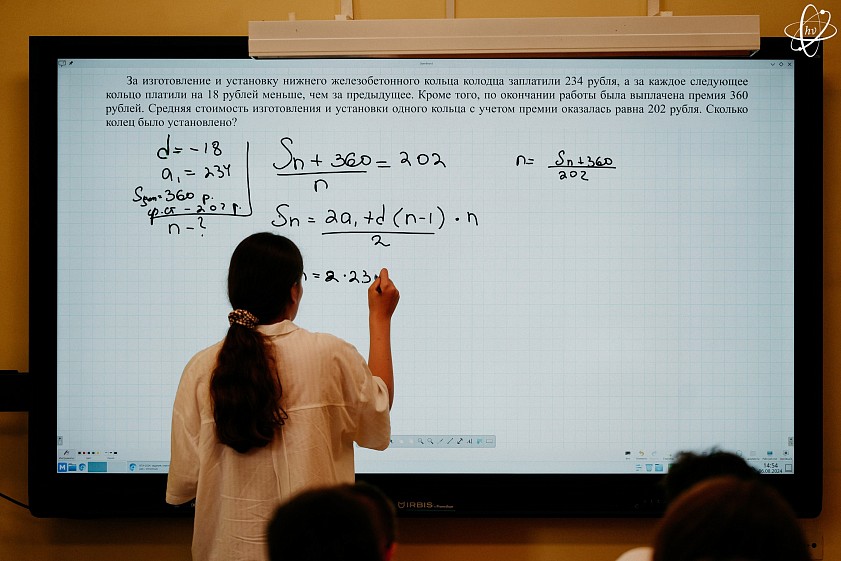 За изготовление и установку нижнего железобетонного кольца колодца заплатили 234 рубля, а за каждое следующее
кольцо платили на 18 рублей меньше, чем за предыдущее. Кроме того, по окончании работы была выплачена премия 360
рублей. Средняя стоимость изготовления и установки одного кольца с учетом премии оказалась равна 202 рубля. Сколько
колец было установлено?
d = -18
a₁ = 234
360 р.
ф.ст - 202 р.
n - ?
Sn + 360 = 202
n
Sn = 2a₁ + d (n-1) · n
2
= 2 · 23
n = Sn + 360
202
hν
IRBIS
14:54